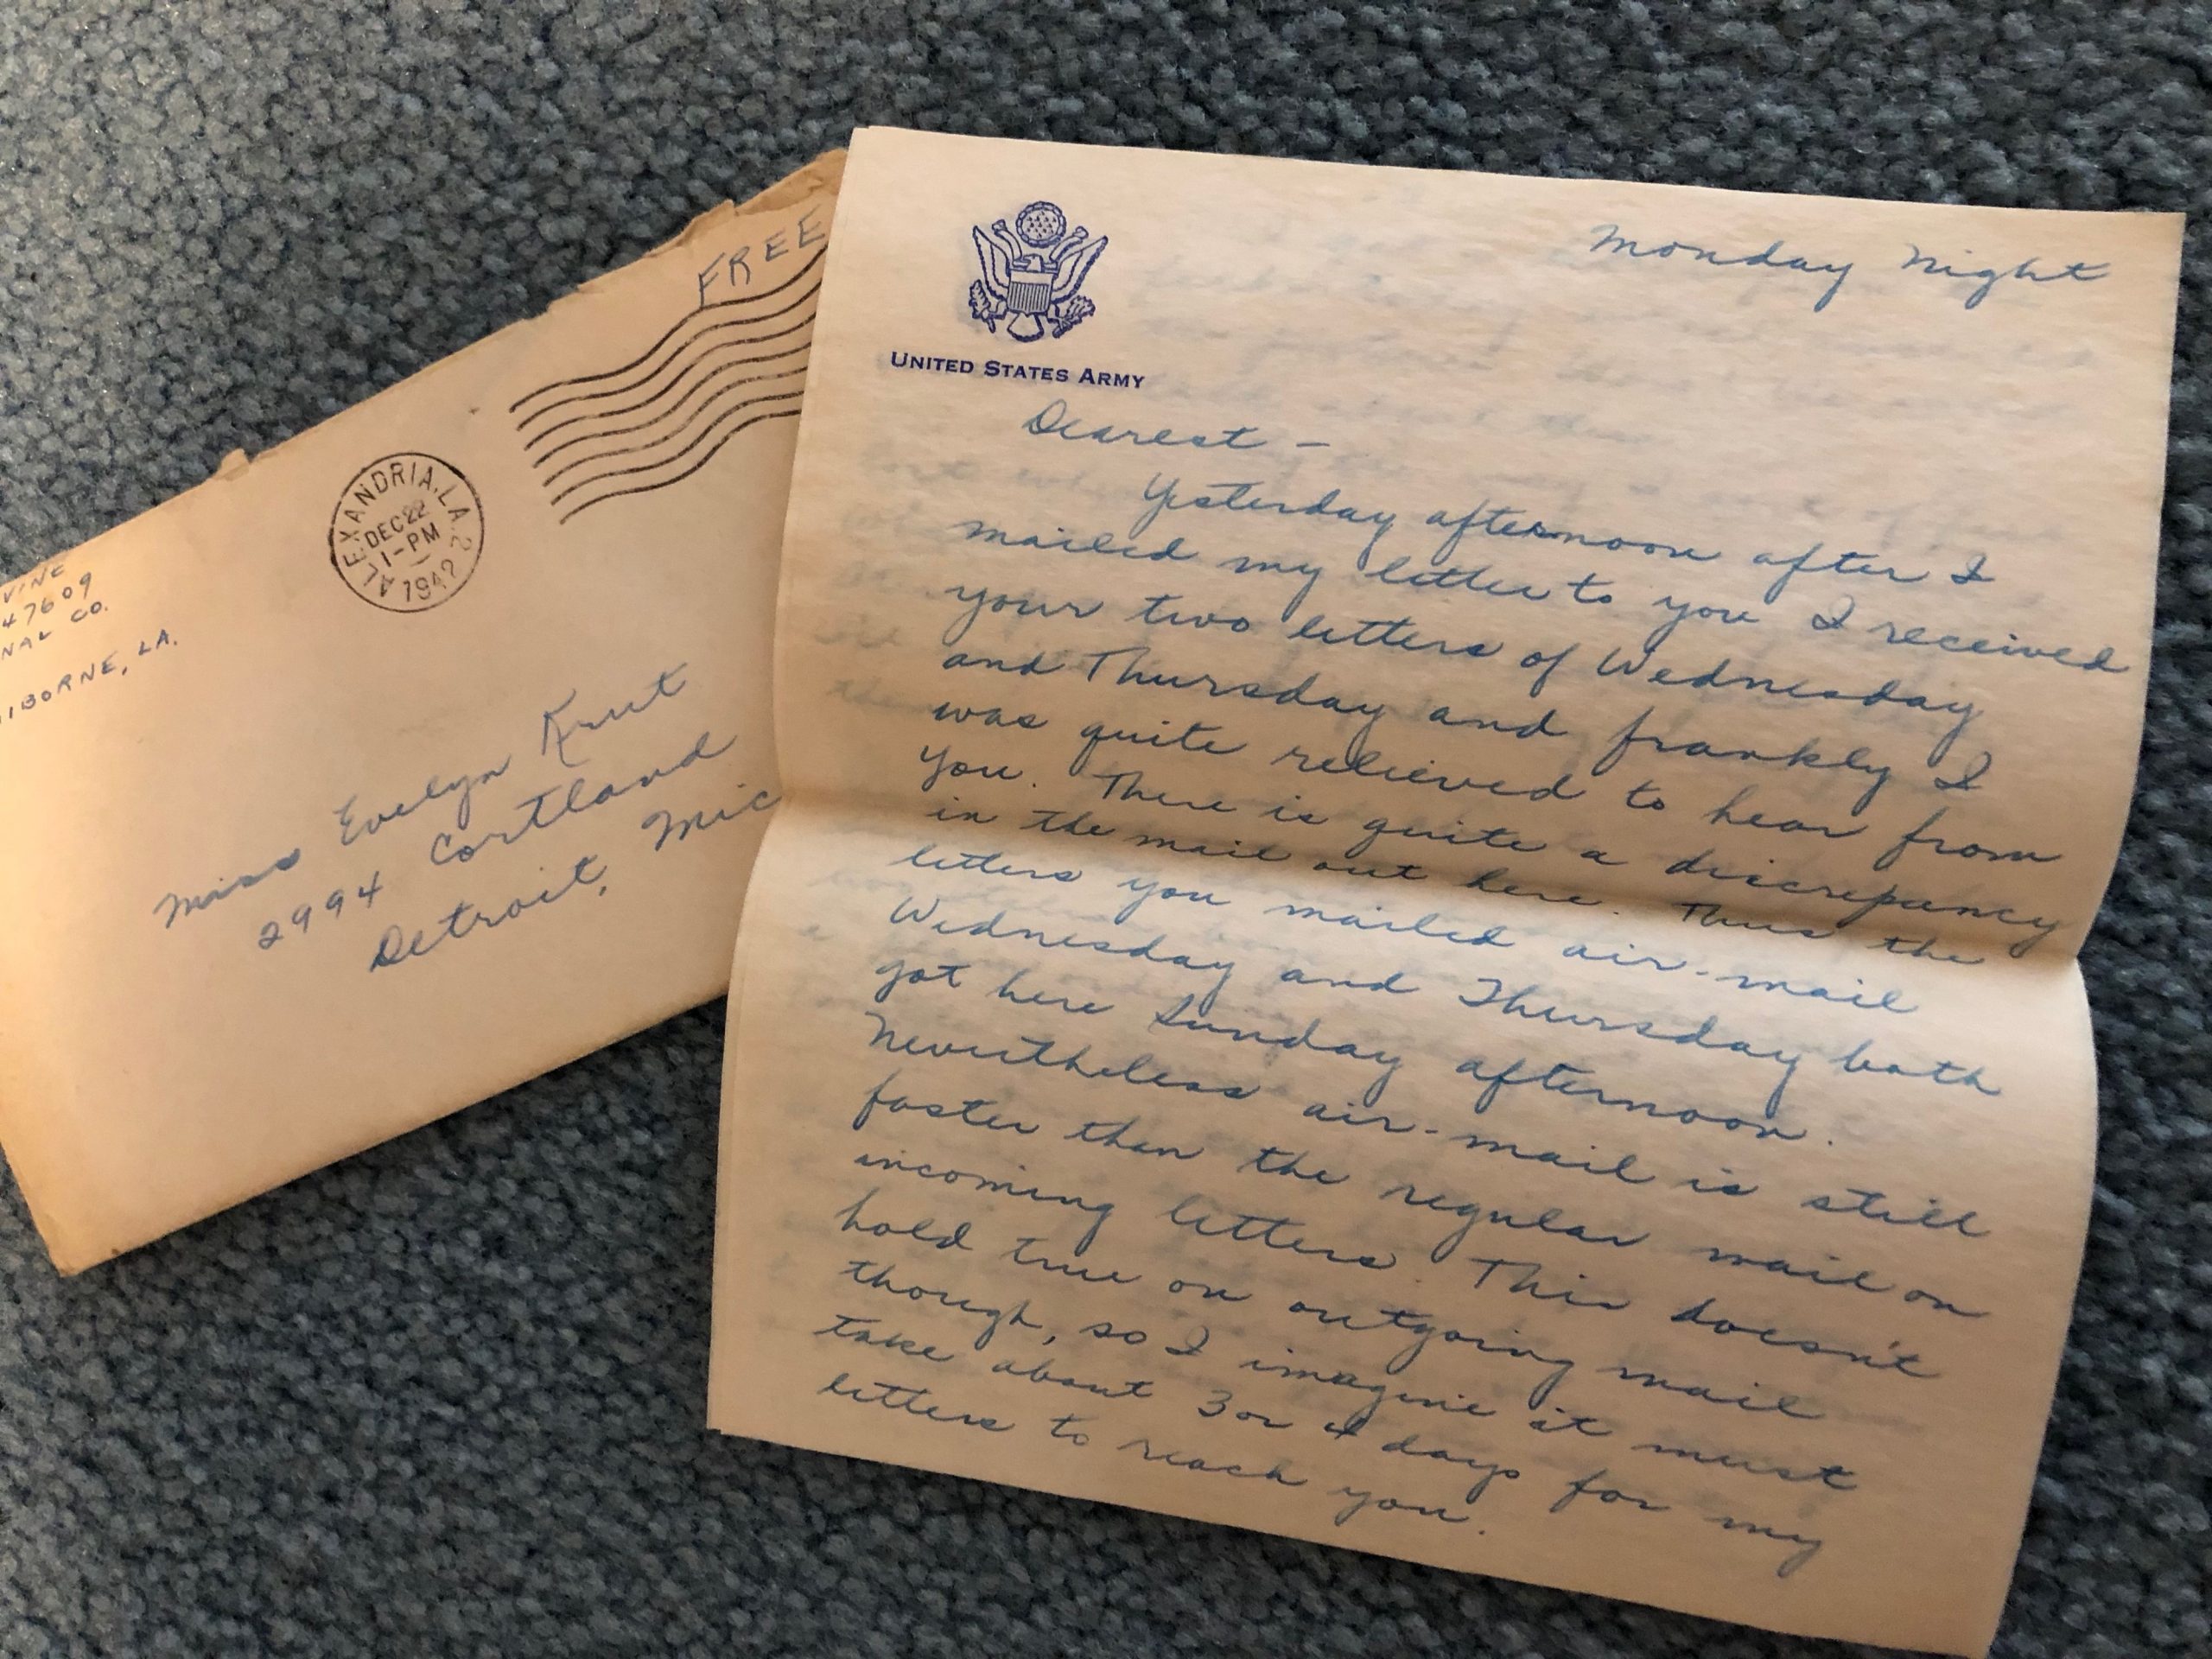 FREE
ALEXANDRIA, LA. 2
DEC 22
1-PM
1942
VINE
47609
NAL CO.
IBORNE, LA.
Miss Evelyn Krut
2994 Cortland
Detroit, Mic
UNITED STATES ARMY
Monday Night
Dearest –
Yesterday afternoon after I
mailed my letter to you I received
your two letters of Wednesday
and Thursday and frankly I
was quite relieved to hear from
you. There is quite a discrepancy
in the mail out here. Thus the
letters you mailed air-mail
Wednesday and Thursday both
got here Sunday afternoon.
Nevertheless air-mail is still
faster than the regular mail on
incoming letters. This doesn't
hold true on outgoing mail
though, so I imagine it must
take about 3 or 4 days for my
letters to reach you.